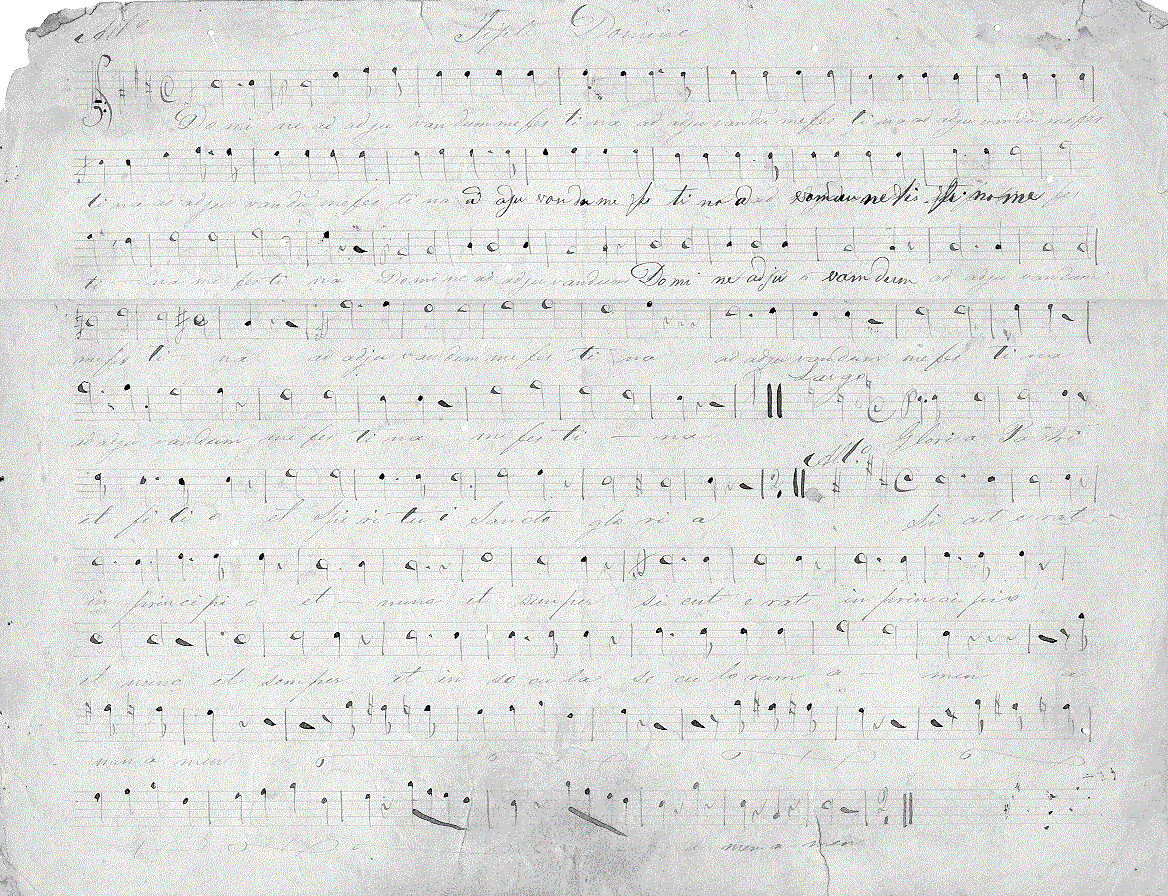 Tiple Domine
Do mi ne ad adju vandum me fes ti na ad adju vandu me fes ti na ad adju vandu me fes
ti na ad adju vandu me fes ti na ad aju vandu me fes ti na ad
ti na me fes ti na Domi ne ad adju vandum Do mi ne adju vam dum ad adju vandum
me fes ti na ad adju vandum me fes ti na ad adju vandum me fes ti na
Largo
ad adju vandum me fes ti na me fes ti - na Gloria Patri
All.o
et fi li o et Spi ri tu i Sancto glo ri a Si cut e rat
in princi pi o et - nunc et semper si cut e rat in princi pi o
et nunc et semper et in se cu la se cu lo rum a - men a
men a men
a men a men